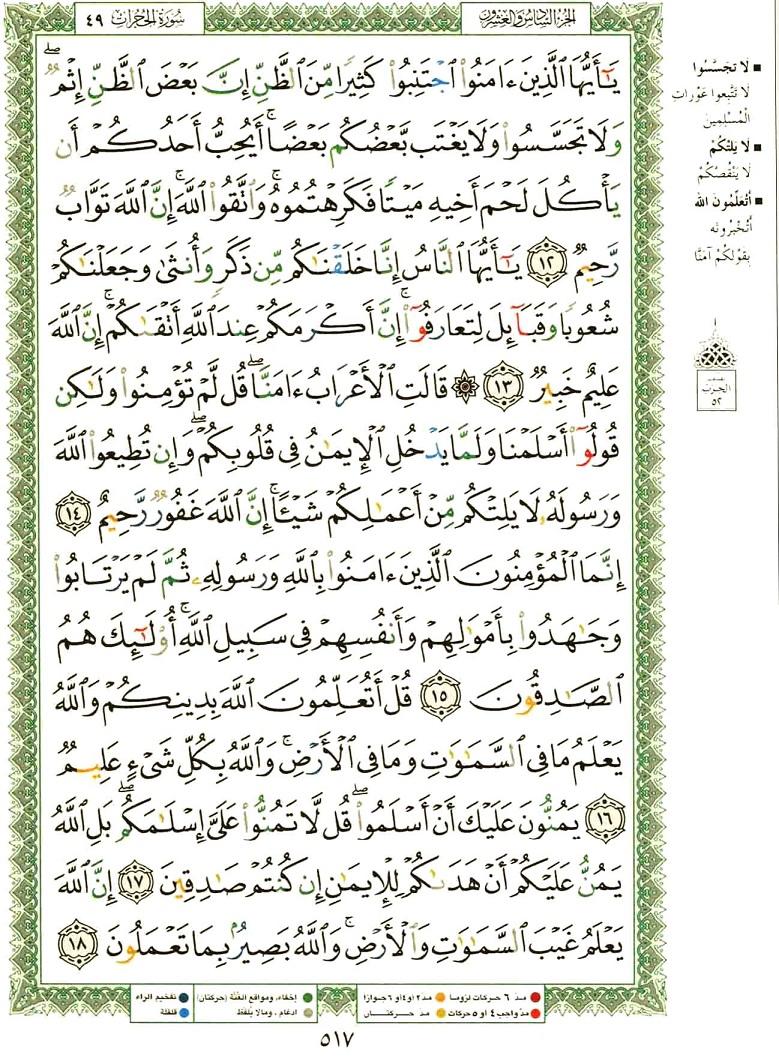 الجزء السادس والعشرون
سورة الحجرات ٤٩
يَٰٓأَيُّهَا ٱلَّذِينَ ءَامَنُوا۟ ٱجْتَنِبُوا۟ كَثِيرًا مِّنَ ٱلظَّنِّ إِنَّ بَعْضَ ٱلظَّنِّ إِثْمٌ ۖ
وَلَا تَجَسَّسُوا۟ وَلَا يَغْتَب بَّعْضُكُم بَعْضًا ۚ أَيُحِبُّ أَحَدُكُمْ أَن
يَأْكُلَ لَحْمَ أَخِيهِ مَيْتًا فَكَرِهْتُمُوهُ ۚ وَٱتَّقُوا۟ ٱللَّهَ ۚ إِنَّ ٱللَّهَ تَوَّابٌ
رَّحِيمٌ ١٢ يَٰٓأَيُّهَا ٱلنَّاسُ إِنَّا خَلَقْنَٰكُم مِّن ذَكَرٍ وَأُنثَىٰ وَجَعَلْنَٰكُمْ
شُعُوبًا وَقَبَآئِلَ لِتَعَارَفُوٓا۟ ۚ إِنَّ أَكْرَمَكُمْ عِندَ ٱللَّهِ أَتْقَىٰكُمْ ۚ إِنَّ ٱللَّهَ
عَلِيمٌ خَبِيرٌ ١٣ ۞ قَالَتِ ٱلْأَعْرَابُ ءَامَنَّا ۖ قُل لَّمْ تُؤْمِنُوا۟ وَلَٰكِن
قُولُوٓا۟ أَسْلَمْنَا وَلَمَّا يَدْخُلِ ٱلْإِيمَٰنُ فِى قُلُوبِكُمْ ۖ وَإِن تُطِيعُوا۟ ٱللَّهَ
وَرَسُولَهُۥ لَا يَلِتْكُم مِّنْ أَعْمَٰلِكُمْ شَيْـًٔا ۚ إِنَّ ٱللَّهَ غَفُورٌ رَّحِيمٌ ١٤
إِنَّمَا ٱلْمُؤْمِنُونَ ٱلَّذِينَ ءَامَنُوا۟ بِٱللَّهِ وَرَسُولِهِۦ ثُمَّ لَمْ يَرْتَابُوا۟
وَجَٰهَدُوا۟ بِأَمْوَٰلِهِمْ وَأَنفُسِهِمْ فِى سَبِيلِ ٱللَّهِ ۚ أُو۟لَٰٓئِكَ هُمُ
ٱلصَّٰدِقُونَ ١٥ قُلْ أَتُعَلِّمُونَ ٱللَّهَ بِدِينِكُمْ وَٱللَّهُ
يَعْلَمُ مَا فِى ٱلسَّمَٰوَٰتِ وَمَا فِى ٱلْأَرْضِ ۚ وَٱللَّهُ بِكُلِّ شَىْءٍ عَلِيمٌ
١٦ يَمُنُّونَ عَلَيْكَ أَنْ أَسْلَمُوا۟ ۖ قُل لَّا تَمُنُّوا۟ عَلَىَّ إِسْلَٰمَكُم ۖ بَلِ ٱللَّهُ
يَمُنُّ عَلَيْكُمْ أَنْ هَدَىٰكُمْ لِلْإِيمَٰنِ إِن كُنتُمْ صَٰدِقِينَ ١٧ إِنَّ ٱللَّهَ
يَعْلَمُ غَيْبَ ٱلسَّمَٰوَٰتِ وَٱلْأَرْضِ ۚ وَٱللَّهُ بَصِيرٌۢ بِمَا تَعْمَلُونَ ١٨
■ لا تجسسوا
لا تتبعوا عورات
المسلمين
■ لا يلتكم
لا ينقصكم
■ أتعلمون الله
أتخبرونه
بقولكم آمنا
الحزب
٥٢
مد ٦ حركات لزوما ● مد ٢ أو ٤ أو ٦ جوازا ● إخفاء، ومواقع الغنة (حركتان) ● تفخيم الراء
مد واجب ٤ أو ٥ حركات ● مد حركتان ● ادغام، ومالا يلفظ ● قلقلة
٥١٧